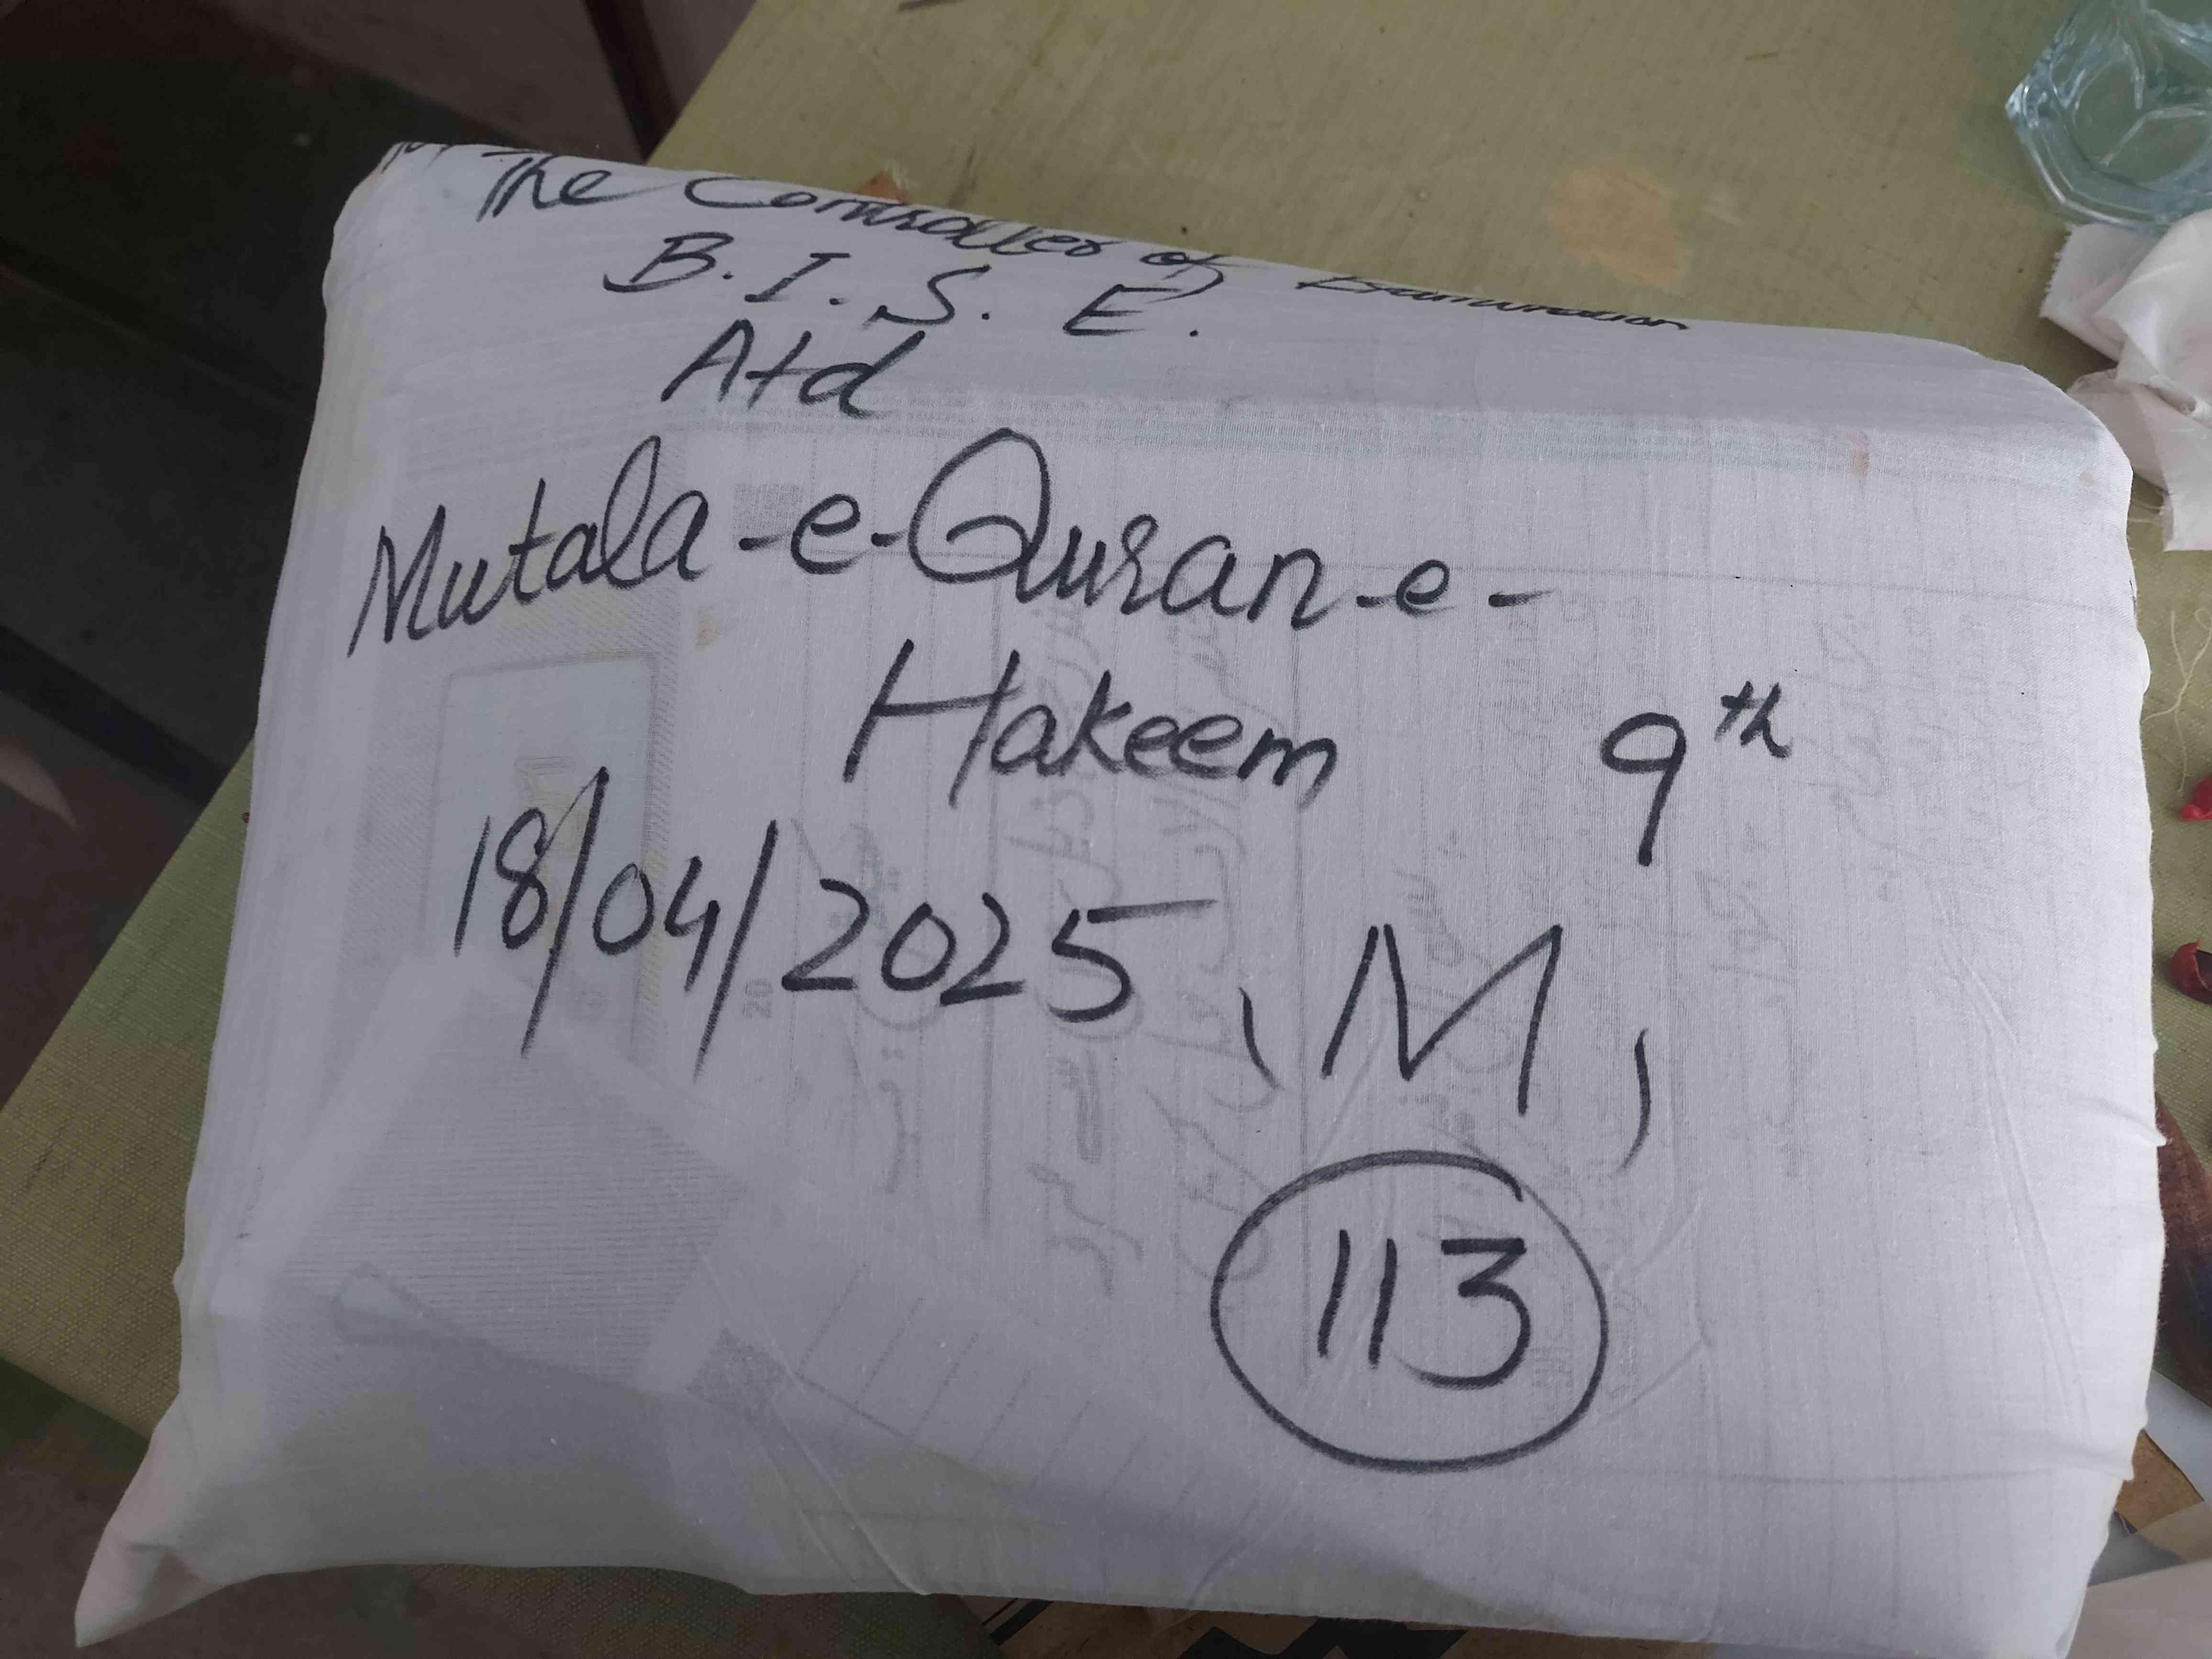 The Controller of Examination
B. I. S. E.
Atd
Mutala-e-Quran-e-
Hakeem 9th
18/04/2025 (M)
113